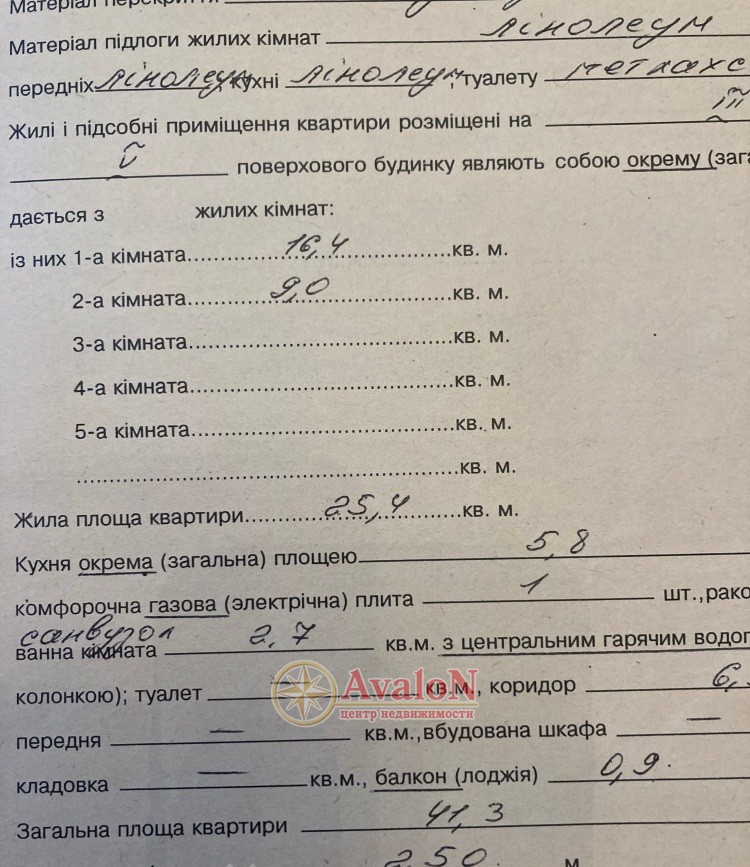 Матеріал перекриття
Матеріал підлоги жилих кімнат лінолеум
передніх лінолеум, кухні лінолеум, туалету метлахс
Жилі і підсобні приміщення квартири розміщені на III
V поверхового будинку являють собою окрему (зага
дається з жилих кімнат:
із них 1-а кімната 16,4 кв. м.
2-а кімната 9,0 кв. м.
3-а кімната кв. м.
4-а кімната кв. м.
5-а кімната кв. м.
кв. м.
Жила площа квартири 25,4 кв. м.
Кухня окрема (загальна) площею 5,8
комфорочна газова (электрічна) плита 1 шт.,рако
санвузол
ванна кімната 2,7 кв.м. з центральним гарячим водог
колонкою); туалет — кв.м., коридор 6,
AvaloN
центр недвижимости
передня — кв.м.,вбудована шкафа —
кладовка — кв.м., балкон (лоджія) 0,9.
Загальна площа квартири 41,3
250 м